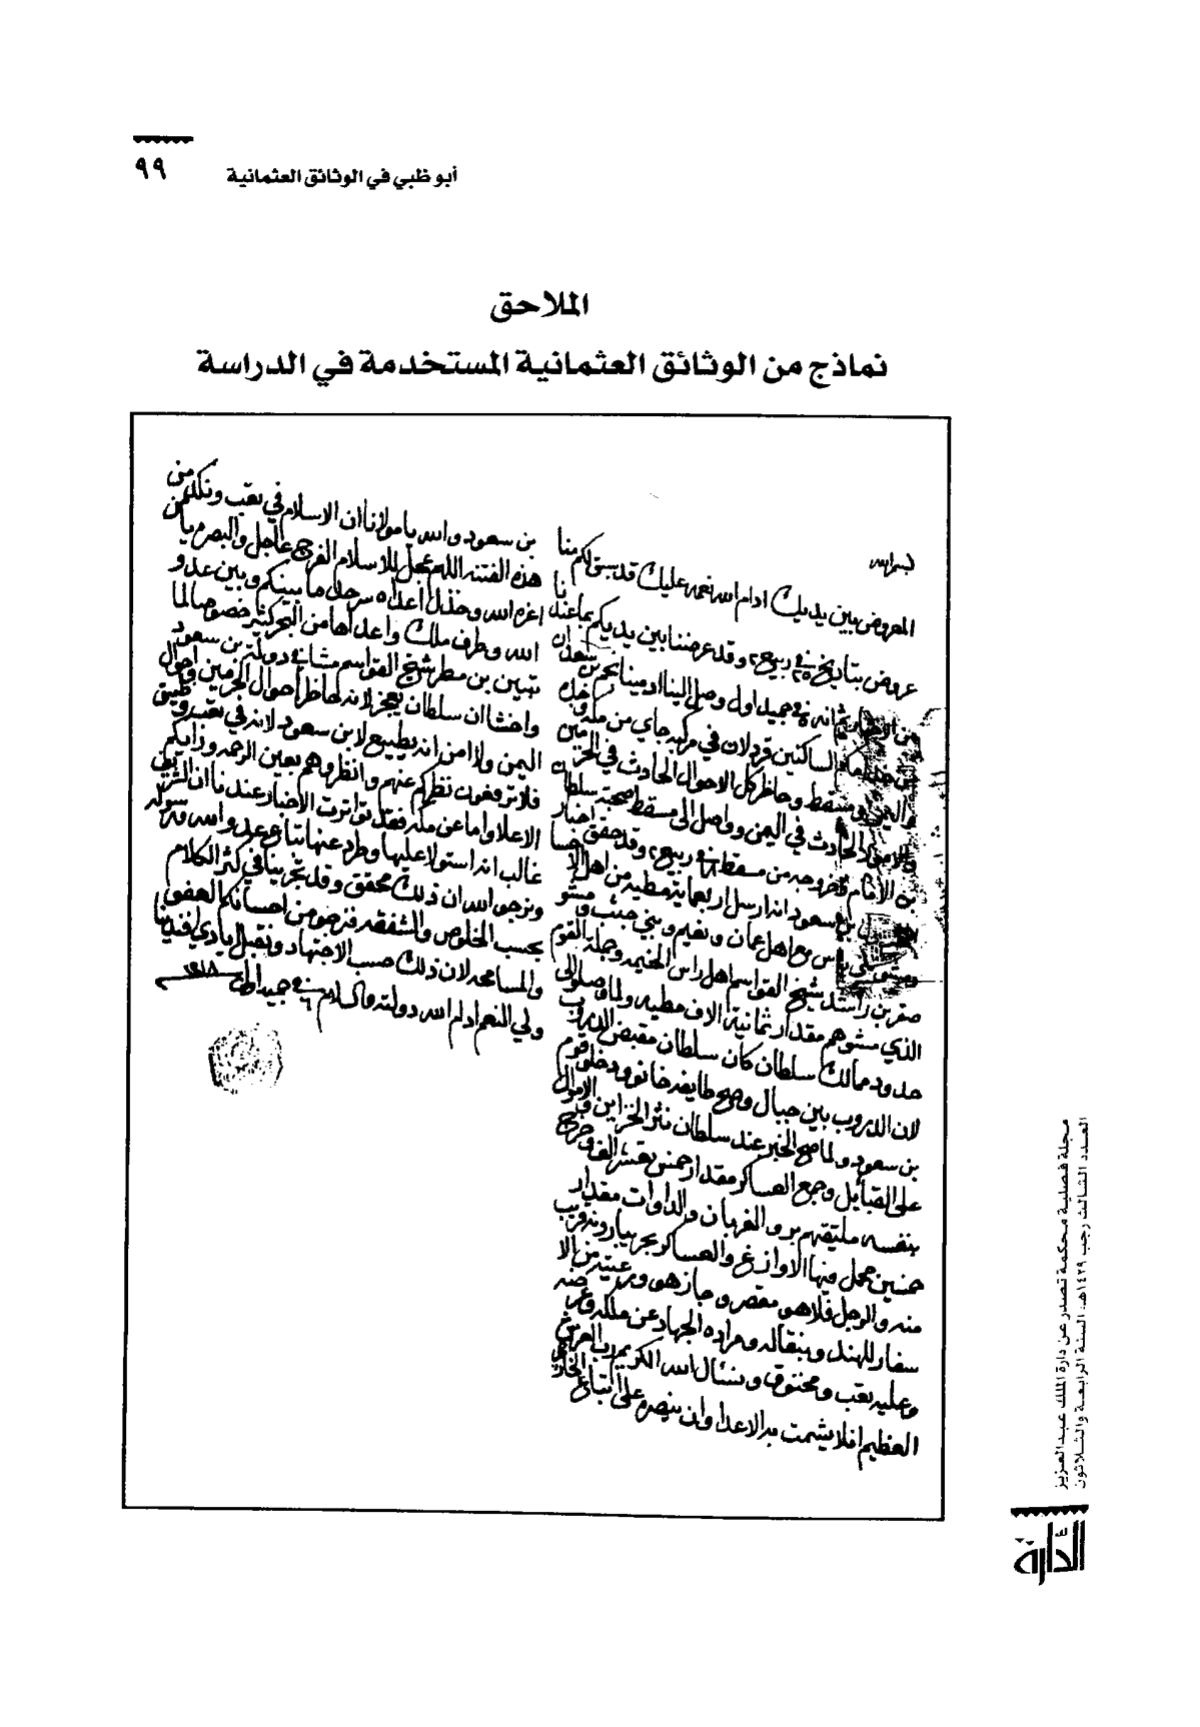 ٩٩
أبو ظبي في الوثائق العثمانية
الملاحق
نماذج من الوثائق العثمانية المستخدمة في الدراسة
المعروض بين يديك ادام الله نعمه عليك قد سبق لكم منا
عروض بتاريخ في ٢٥ ربيع٢ وقد عرضنا بين يديكم بما عندنا
في جميد اول وصل الينا ادمينا بحر بن
الساكنين قردلان في مركب جاي من مكه
ومسقط وحاظر كل الاحوال الحادث في الحرمين
الحادث في اليمن وواصل الى مسقط صحبة سلطان
بن الامام وخروجه من مسقط في ربيع٢ وقد حقق اخبار
بن سعود انه ارسل اربعماية مطيه من اهل الحسا
مع اهل عمان ونعيم وبني
صقر بن راشد شيخ القواسم اهل راس الخيمه وجملة القوم
الذي مشوهم مقدار ثمانية الاف مطيه ولما وصلو الى
حدود ممالك سلطان كان سلطان مقبض الدروب
لان الدروب بين جبال وصح طايفه خانو ودخلو قوم
بن سعود ولما صح الخبر عند سلطان نثر الخزاين
على القبايل وجمع العساكر مقدار خمس عشر الف وخرج
بنفسه ملتيقهم بر والغربان والداوات مقدار
خمسين محمل فيها الاوازغ والعساكر بحر يبارونه قريب
منه والرجل فلا هو مقصر وجازهو
سفار للهند وبنقاله ومراده الجهاد عن ملكه وعرضه
وعليه تعب ومخنوق ونسئال الله الكريم رب العرش
العظيم فلا يشمت به الاعدا وان ينصره على اتباع
بن سعود والله يا مولانا ان الاسلام في تعب ونكد من
هذه الفتنه اللهم عجل للاسلام الفرج عاجل والبصره يا
اعزه الله وخذل اعداه سرحال ما بينكم وبين عدو
الله وطرف ملك واعداها من البحر كثير خصوصا لما
تبين بن مطر شيخ القواسم مشا في دولة بن سعود
واحشا ان سلطان يعجز لانه لحاظر احوال الحرمين واحوال
اليمن ولا امن انه يطيع لابن سعود لانه في تعب وضيق
فلا ترفعون نظركم عنهم وانظروهم بعين الرحمه ورايكم
الاعلا واما عن مكه فقد تواترت الاخبار عندنا ان الشريف
غالب انه استولا عليها وطرد عنها اتباع عدو الله ورسوله
ونرجو الله ان ذلك محقق وقد تجرينا في كثر الكلام
بحسب الخلوص والشفقه فنرجو من احسانكم العفو
والمسامحه لان ذلك حسب الاجتهاد ونقبل ايادي افندينا
ولي النعم ادام الله دولته والسلام في ٦ جميد اول
١٢١٨
مجلة فصلية محكمة تصدر عن دارة الملك عبدالعزيز
العدد الثالث رجب ١٤٢٩هـ، السنة الرابعة والثلاثون
الدارة